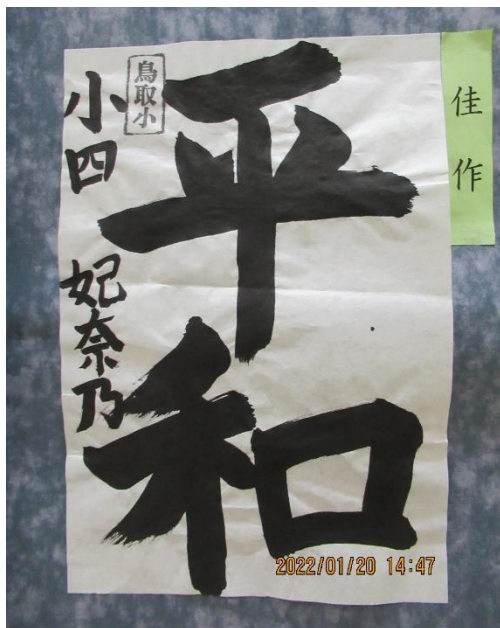 佳作
平和
鳥取小
小四 妃奈乃
2022/01/20 14:47